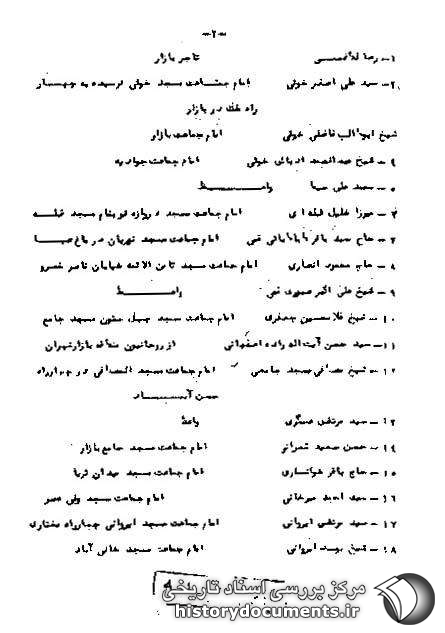 -۲-
۱- رضا تاجر بازار
۲- سید علی اصغر خوئی امام جماعت مسجد خوئی نرسیده به چهار
راه در بازار
شیخ ابوطالب فاضلی خوئی امام جماعت بازار
۴- شیخ عبدالصمد خوئی امام جماعت جوادیه
۵- سید علی واعظ
۶- میرزا خلیل قبله ای امام جماعت مسجد دروازه نو بنام مسجد قبله
۷- حاج سید باقر قمی امام جماعت مسجد تهران در باغ صبا
۸- حاج محمود انصاری امام جماعت مسجد ثامن الائمه خیابان ناصر خسرو
۹- شیخ علی اکبر قمی واعظ
۱۰- شیخ غلامحسین جعفری امام جماعت مسجد چهل ستون مسجد جامع
۱۱- سید حسن آیت اله زاده اصفهانی از روحانیون منطقه بازار تهران
۱۲- شیخ مصطفی مسجد جامعی امام جماعت مسجد در چهارراه
حسن آباد
۱۳- سید مرتضی عسگری واعظ
۱۴- حسن سعید تهرانی امام جماعت مسجد جامع بازار
۱۵- حاج باقر خوانساری امام جماعت مسجد میدان ثریا
۱۶- سید احمد میرخانی امام جماعت مسجد ولی عصر
۱۷- سید مرتضی ایروانی امام جماعت مسجد ایروانی چهارراه مختاری
۱۸- شیخ یوسف ایروانی امام جماعت مسجد خانی آباد
مرکز بررسی اسناد تاریخی
historydocuments.ir